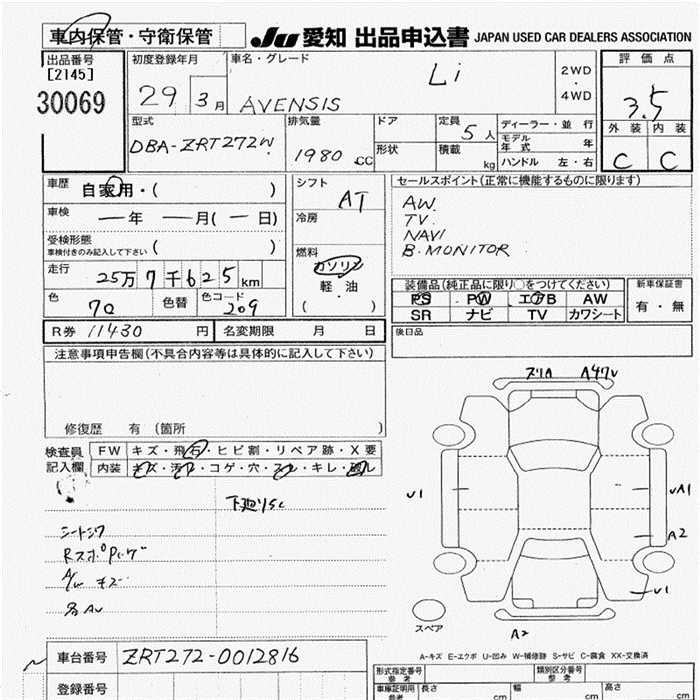 車内保管・守衛保管
JU 愛知 出品申込書 JAPAN USED CAR DEALERS ASSOCIATION
出品番号
[2145]
30069
初度登録年月
29年 3月
車名・グレード
Li
AVENSIS
2WD
4WD
評価点
3.5
外装 内装
C C
型式
DBA-ZRT272W
排気量
1980.CC
ドア
形状
定員
5人
積載
kg
ディーラー・並行
モデル年式 年
ハンドル 左・右
車歴 自家用・( )
車検 ー年 ー月(ー日)
受検形態
車検付きのみ記入して下さい ( )
走行 25万7千625km
色 70 色替 色コード 209
シフト AT
冷房
燃料
ガソリン
軽・油
( )
セールスポイント(正常に機能するものに限ります)
AW.
TV.
NAVI
B.MONITOR
装備品(純正品に限り○をつけてください)
PS PW エアB AW
SR ナビ TV カワシート
新車保証書
有・無
R券 11430 円 名変期限 月 日
後日品
注意事項申告欄(不具合内容等は具体的に記入して下さい)
修復歴 有(箇所 )
検査員記入欄
FW キズ・飛石・ヒビ割・リペア跡・X要
内装 キズ・汚れ・コゲ・穴・スレ・キレ・破レ
下廻りSC
A/W キズ
各AU
A47V
U1
UA1
A2
U1
A2
スペア
A-キズ E-エクボ U-凹み W-補修跡 S-サビ C-腐食 XX-交換済
車台番号 ZRT272-0012816
登録番号
形式指定番号 参考
類別区分番号 参考
車庫証明用 参考
長さ cm 幅 cm 高さ cm